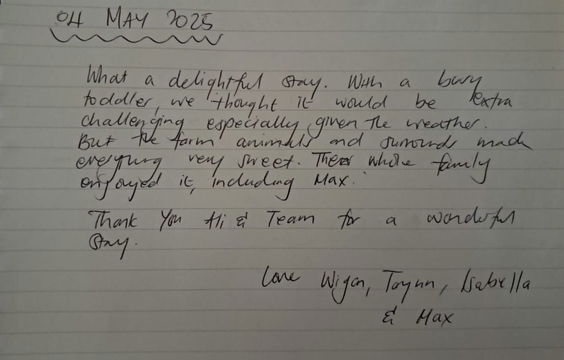 04 MAY 2025
What a delightful stay. With a busy
toddler, we thought it would be extra
challenging especially given the weather.
But the farm animals and surrounds made
everything very sweet. The whole family
enjoyed it, including Max.
Thank You Ali & Team for a wonderful
stay.
Love Wigan, Taynn, Isabella
& Max